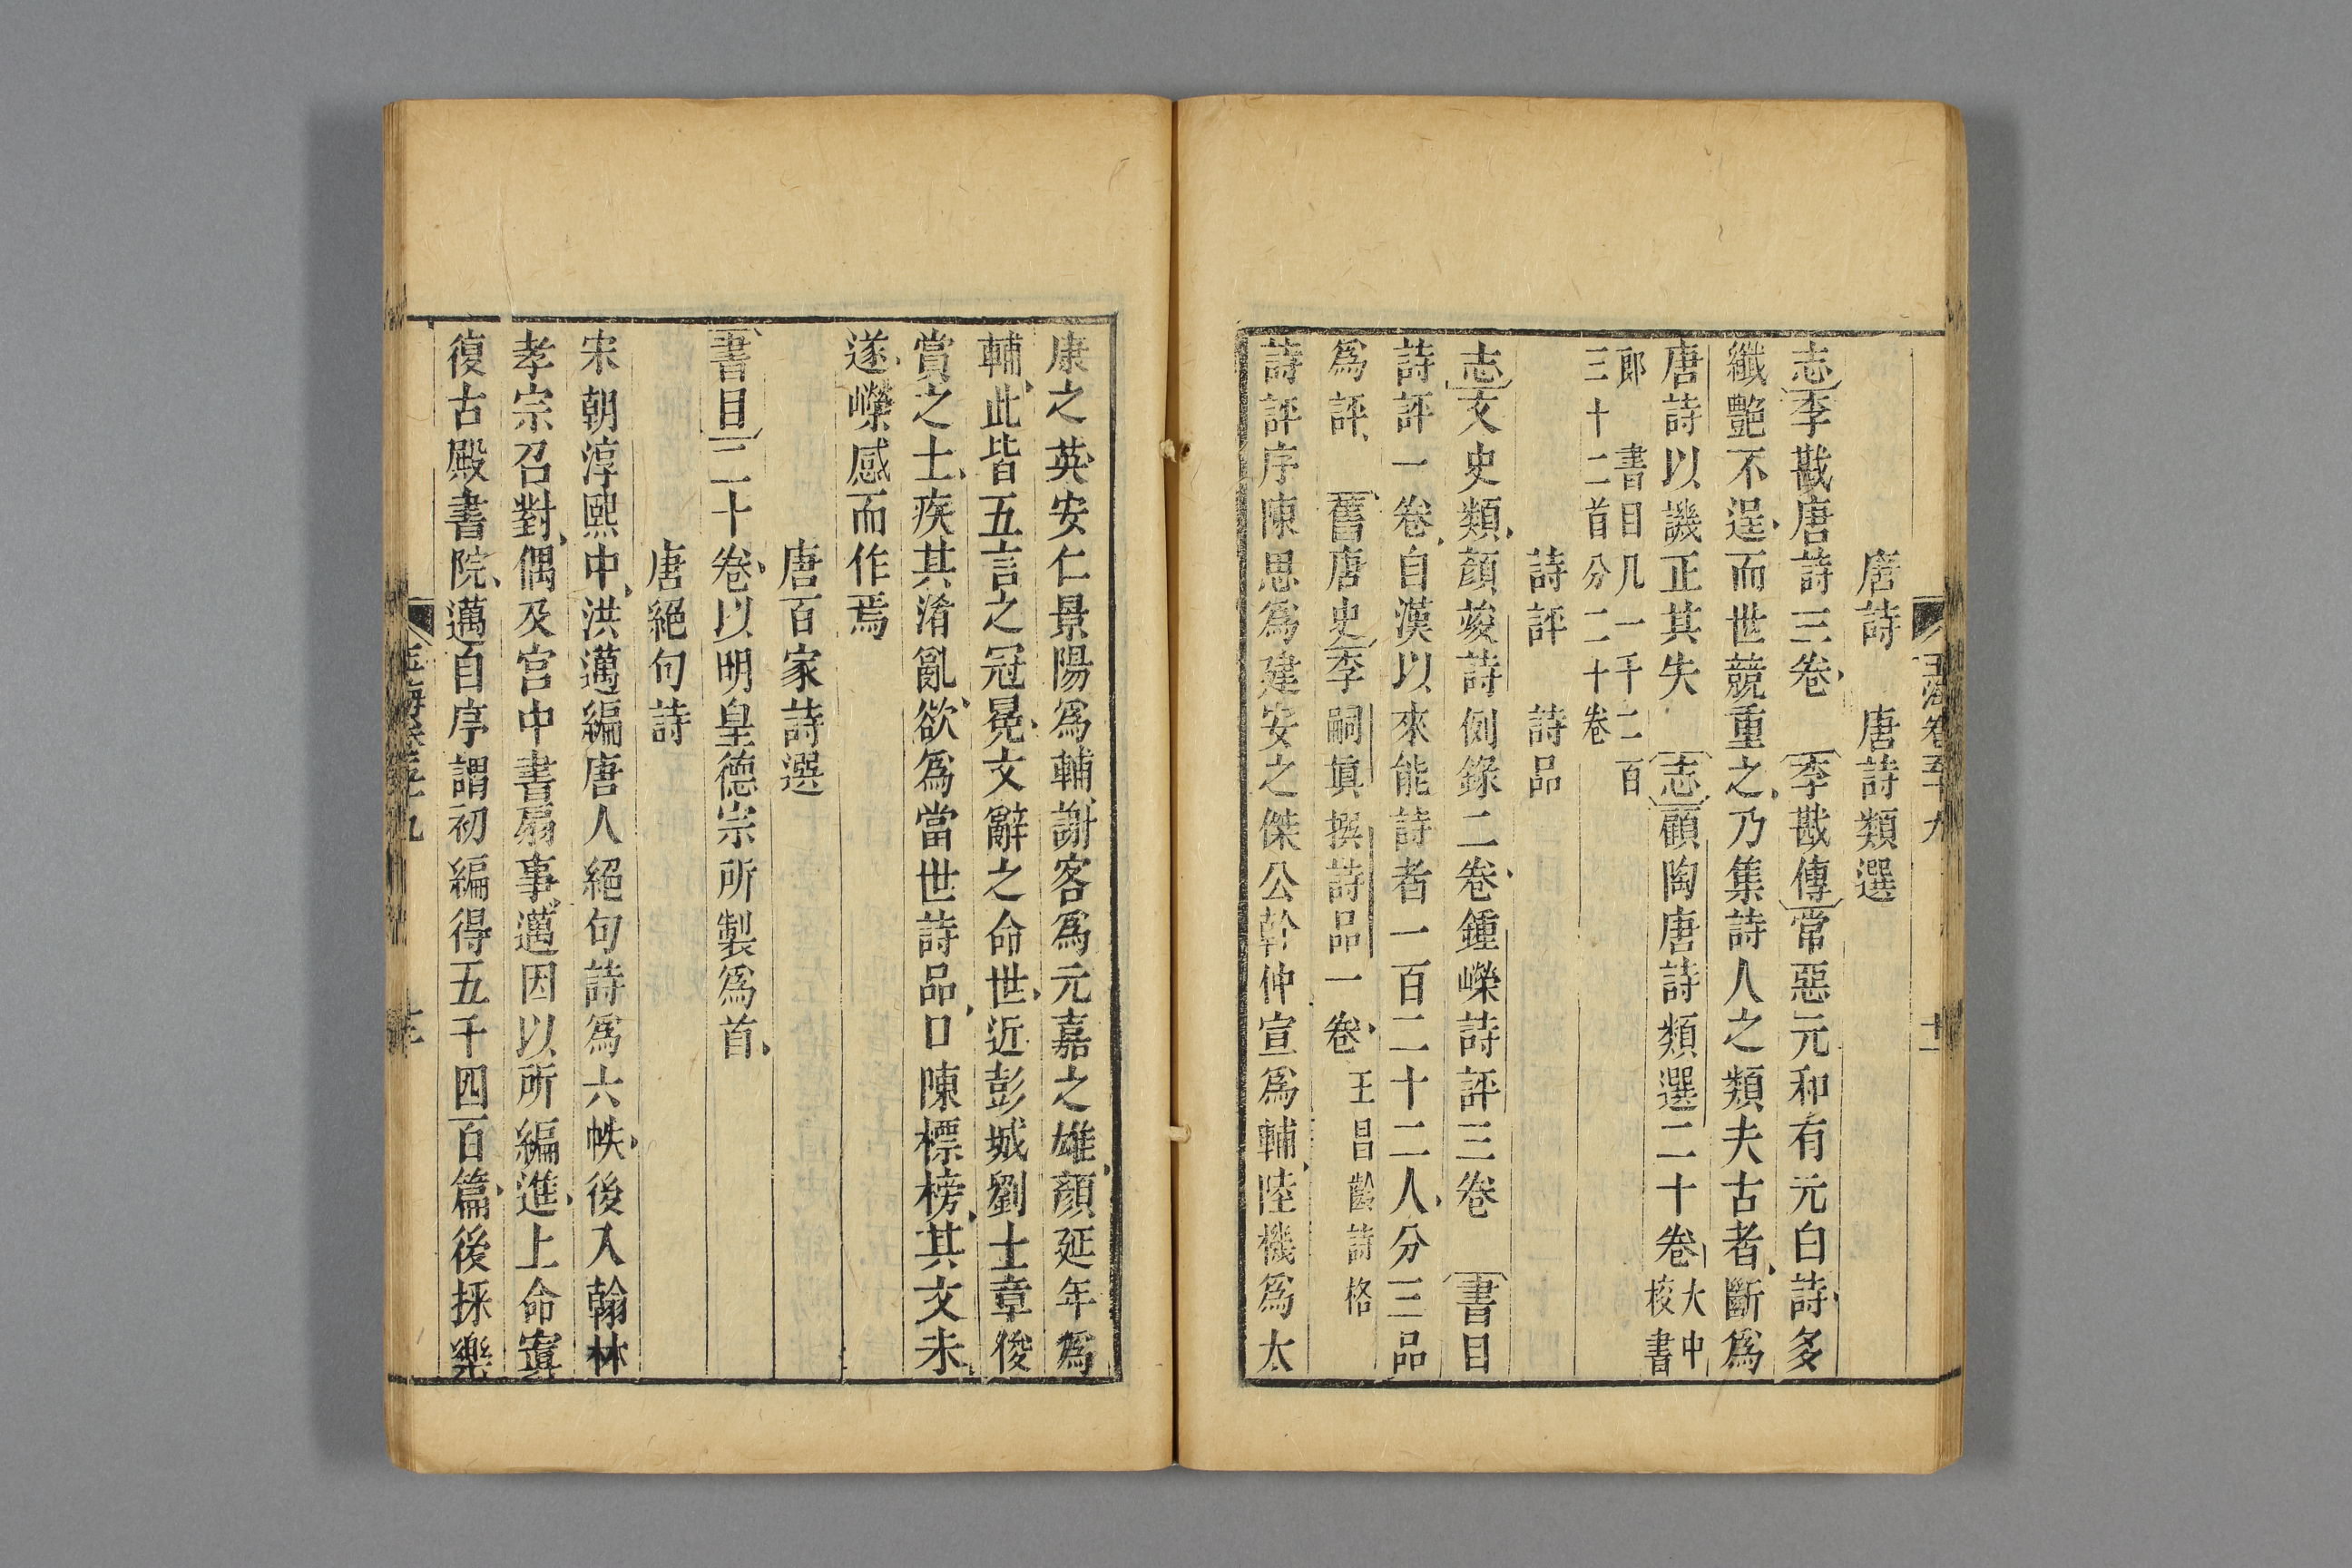 玉海卷五十九
十二
唐詩　唐詩類選
志李戡唐詩三卷　李戡傳常惡元和有元白詩多
纖艷不逞而世競重之乃集詩人之類夫古者斷爲
唐詩以譏正其失　志顧陶唐詩類選二十卷大中
校書
郎　書目凡一千二百
三十二首分二十卷
詩評　詩品
志文史類顏竣詩例錄二卷鍾嶸詩評三卷　書目
詩評一卷自漢以來能詩者一百二十二人分三品
爲評　舊唐史李嗣眞撰詩品一卷王昌齡詩格
詩評序陳思爲建安之傑公幹仲宣爲輔陸機爲太
康之英安仁景陽爲輔謝客爲元嘉之雄顏延年爲
輔此皆五言之冠冕文辭之命世近彭城劉士章俊
賞之士疾其淆亂欲爲當世詩品口陳標榜其文未
遂嶸感而作焉
唐百家詩選
書目二十卷以明皇德宗所製爲首
唐絕句詩
宋朝淳熙中洪邁編唐人絕句詩爲六帙後入翰林
孝宗召對偶及宮中書扇事邁因以所編進上命寘
復古殿書院邁自序謂初編得五千四百篇後採樂
玉海卷五十九